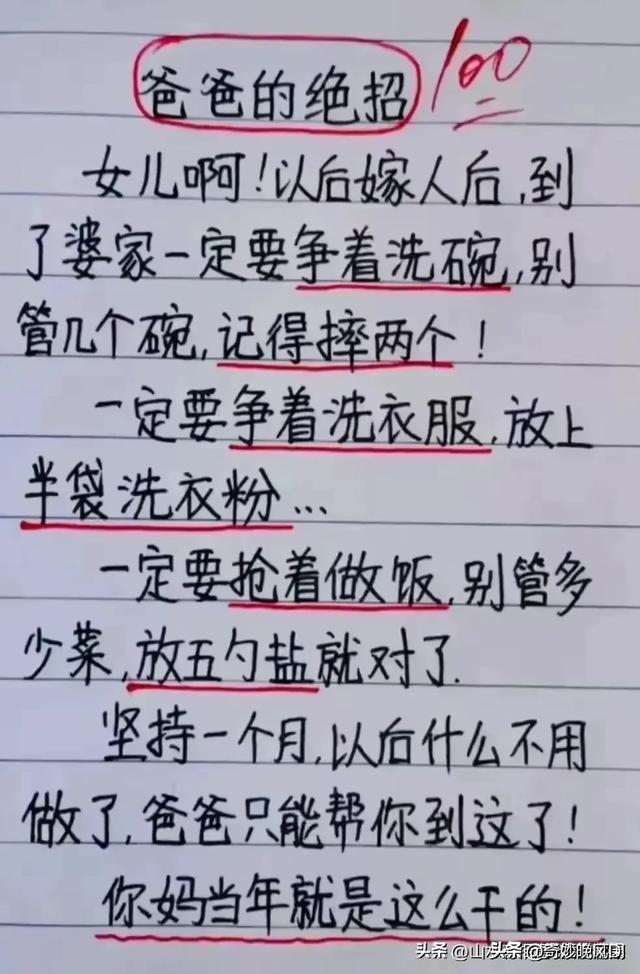 爸爸的绝招
100
女儿啊!以后嫁人后,到
了婆家一定要争着洗碗,别
管几个碗,记得摔两个!
一定要争着洗衣服,放上
半袋洗衣粉...
一定要抢着做饭,别管多
少菜,放五勺盐就对了.
坚持一个月,以后什么不用
做了,爸爸只能帮你到这了!
你妈当年就是这么干的!
头条 @奇妙晚风